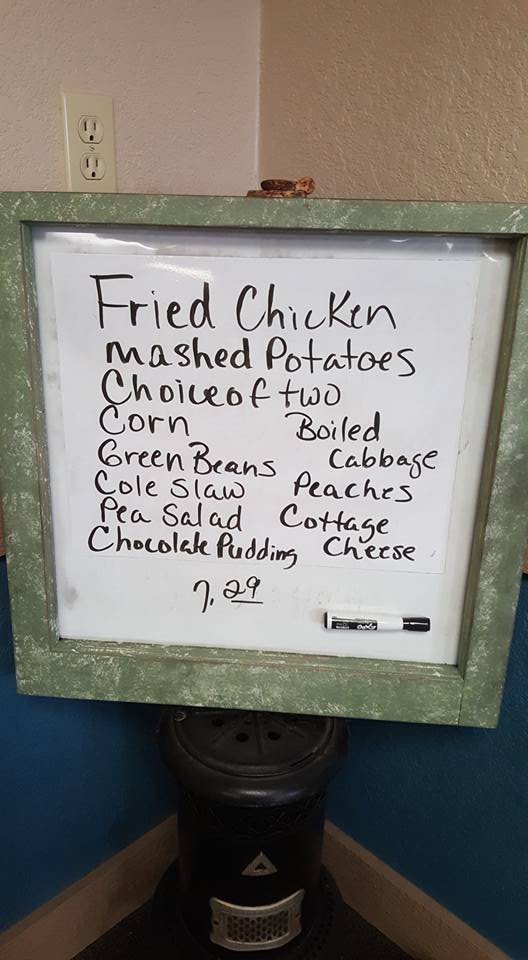 Fried Chicken
mashed Potatoes
Choice of two
Corn
Boiled
Cabbage
Green Beans
Cole slaw
Peaches
Pea Salad
Cottage
Cheese
Chocolate Pudding
7.29
EXPO